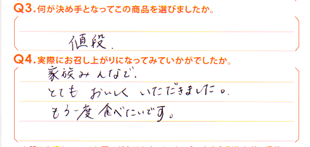 Q3.何が決め手となってこの商品を選びましたか。
値段.
Q4.実際にお召し上がりになってみていかがでしたか。
家族みんなで、
とても おいしく いただきました。
もう一度 食べたいです。